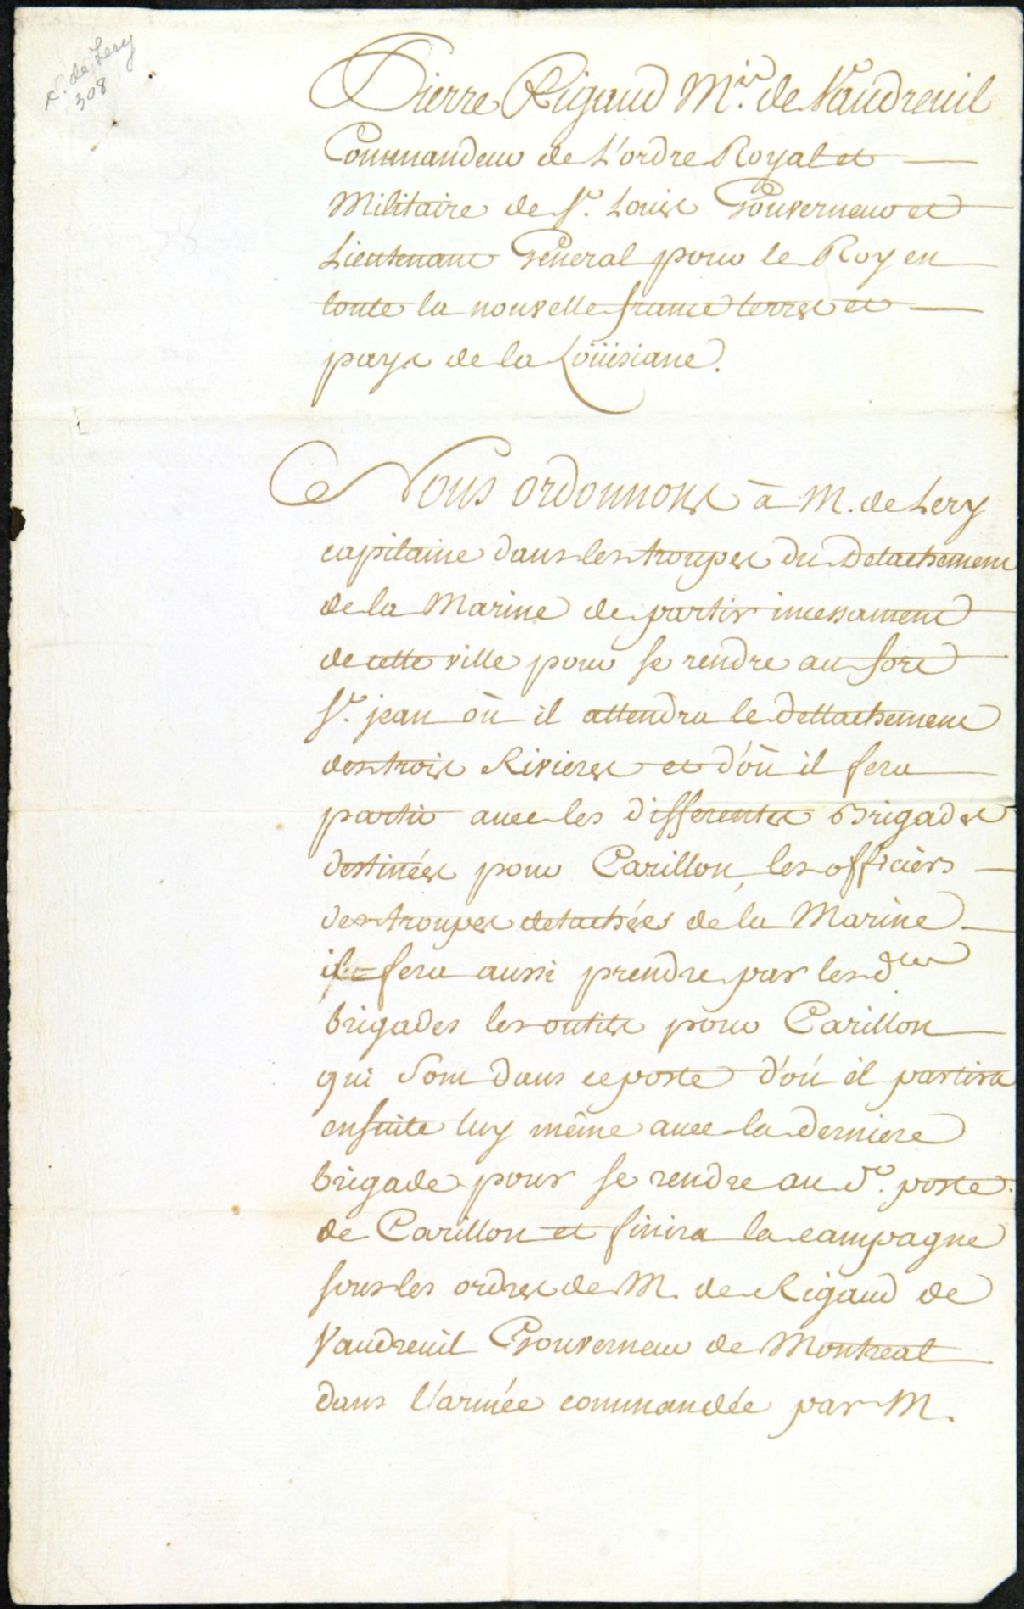 R. de Lery
308
Pierre Rigaud Mis. de Vaudreuil
Commandeur de L'ordre Royal et
Militaire de St. Louis Gouverneur et
Lieutenant General pour le Roy en
toute la nouvelle france terres et
pays de la Loüisiane.
Nous ordonnons à M. de Lery
capitaine dans les troupes du Detachement
de la Marine de partir incessament
de cette ville pour se rendre au fort
St. jean où il attendra le dettachement
des trois Rivieres et d'où il fera
partir avec les differentes Brigades
destinées pour Carillon, les officiers
des troupes detachées de la Marine
il fera aussi prendre par les dtes
brigades les outils pour Carillon
qui Sont dans ce poste d'où il partira
ensuite luy même avec la derniere
brigade pour se rendre au dt. poste
de Carillon et finira la campagne
sous les ordres de M. de Rigaud de
Vaudreuil Gouverneur de Montreal
dans l'armée commandée par M.